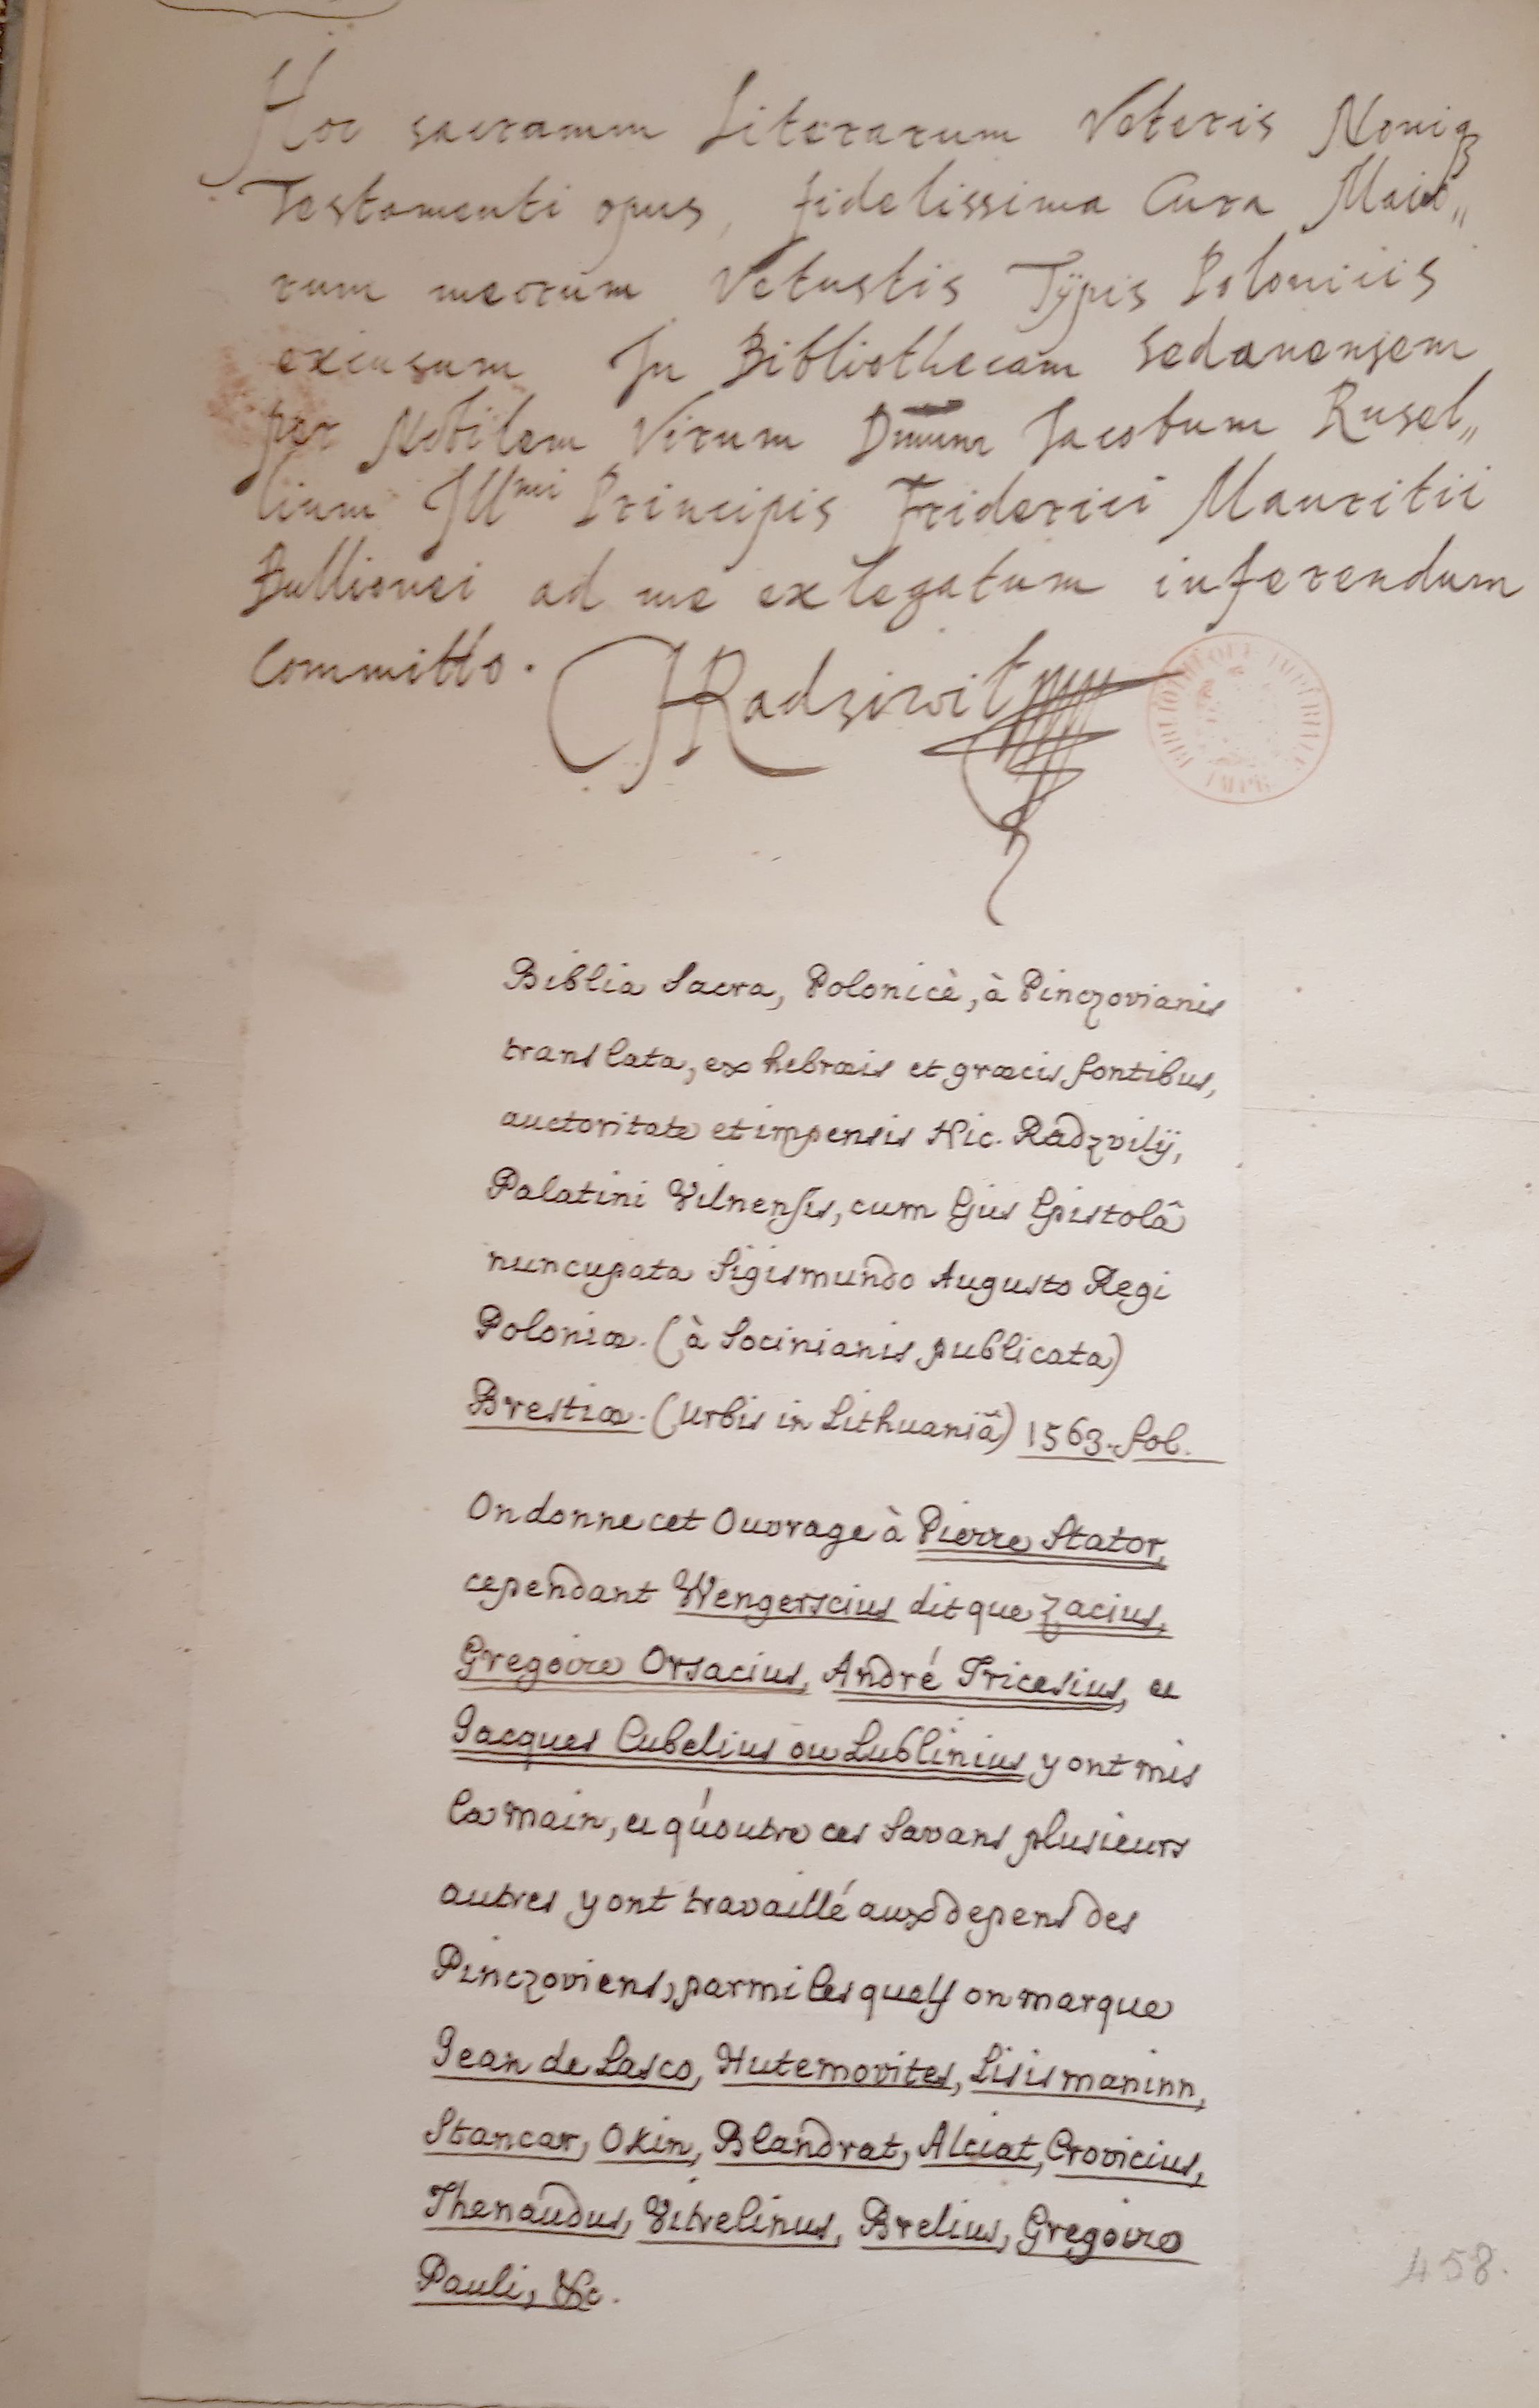 Hoc sacramm Literarum Veteris Noniqꝫ
Testamenti opus, fidelissima Cura Maio„
rum meorum Vetustis Typis Polonicis
excusum In Bibliothecam Sedanensem
per Nobilem Virum Dnum Jacobum Rusel„
lium Illmi Principis Friderici Mauritii
Bullionei ad me exlegatum inferendum
Committo. HRadziwił
BIBLIOTHÈQUE IMPÉRIALE
Biblia Sacra, Polonicè, à Pinczovianis
translata, ex hebræis et græcis fontibus,
auctoritate et impensis Nic. Radzvilÿ,
Palatini Vilnensis, cum Ejus Epistolâ
nuncupata Sigismundo Augusto Regi
Poloniæ. (à Socinianis publicata)
Brestiæ. (Urbis in Lithuaniâ) 1563. fol.
On donne cet Ouvrage à Pierre Stator,
cependant Wengerscius dit que Zacius,
Gregoire Orsacius, André Tricesius, et
Jacques Cubelius ou Lublinius y ont mis
la main, et qu'outre ces Savans plusieurs
autres y ont travaillé aux depens des
Pinczoviens, parmi lesquels on marque
Jean de Lasco, Hutemovites, Lisismaninn,
Stancar, Okin, Blandrat, Alciat, Crovicius,
Thenaudus, Vitrelinus, Brelius, Gregoire
Pauli, &c.
458.